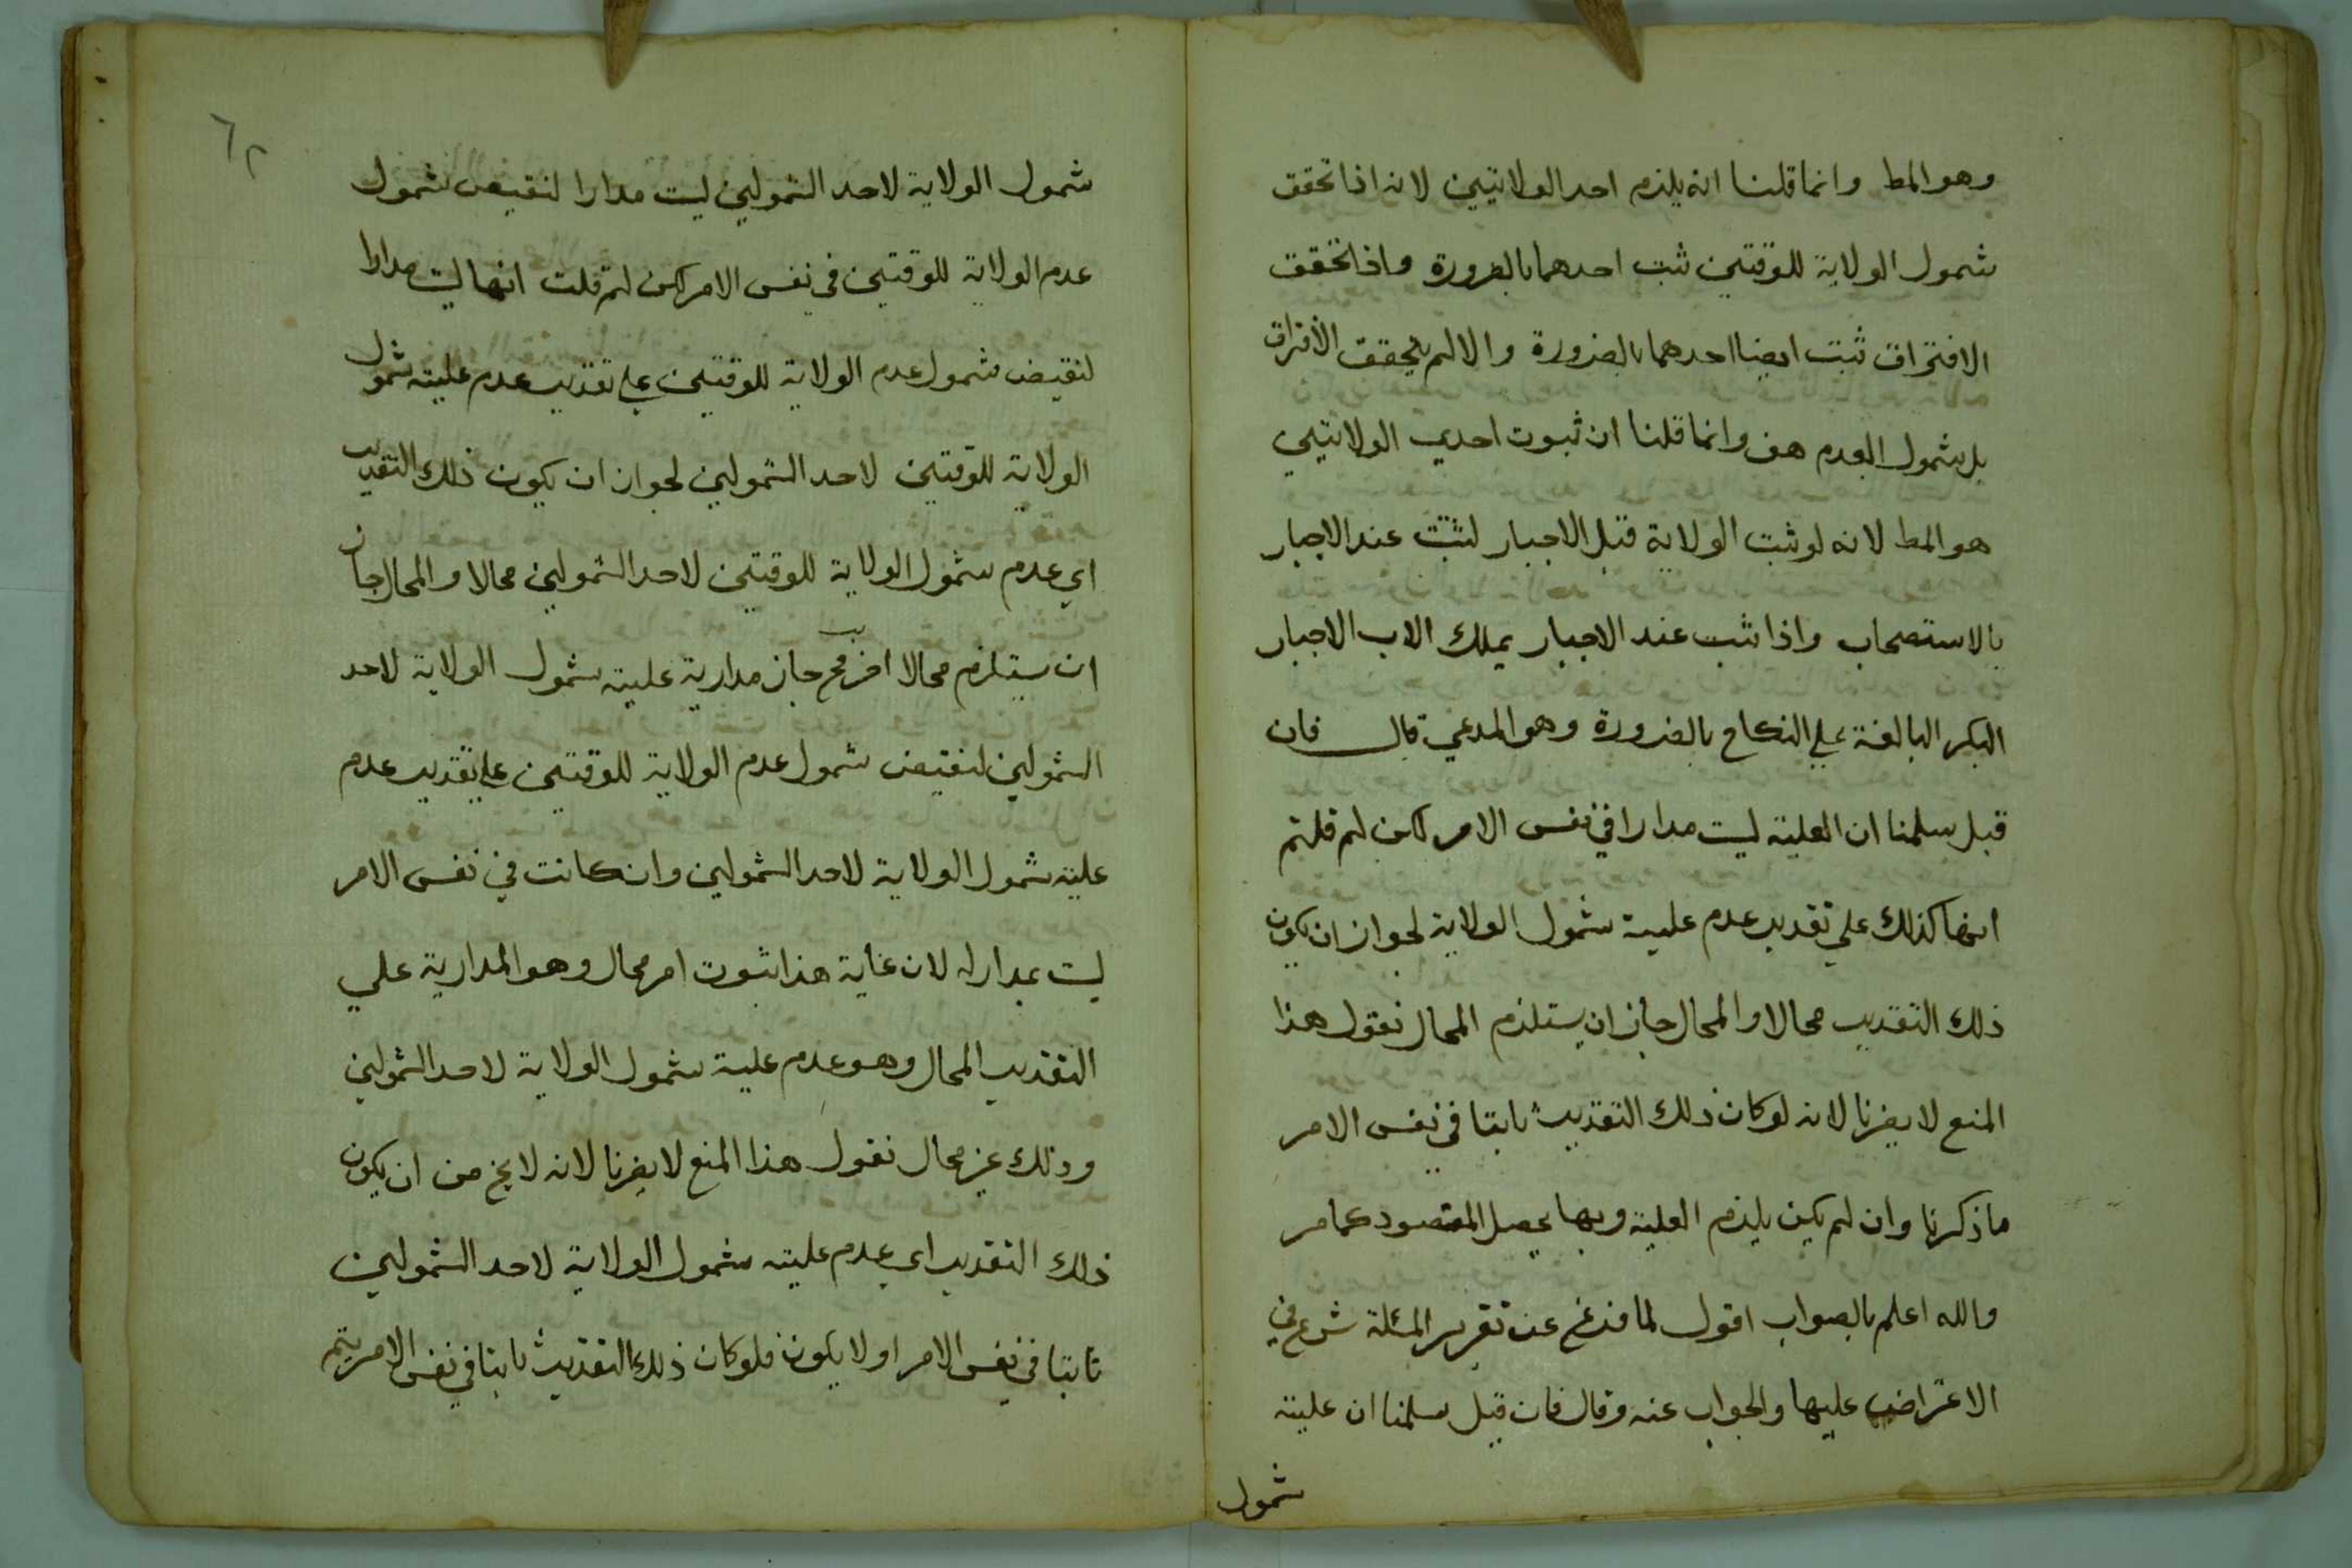 وهو المط وانما قلنا انه يلزم احد الولايتين لانه اذا تحقق
شمول الولاية للوقتين ثبت احدهما بالضرورة واذا تحقق
الافتراق ثبت ايضا احدهما بالضرورة والا لم يتحقق الافتراق
بل شمول العدم هف وانما قلنا ان ثبوت احدي الولايتين
هو المط لانه لو ثبت الولاية قبل الاجبار لثبتت عند الاجبار
بالاستصحاب واذا ثبت عند الاجبار يملك الاب الاجبار
البكر البالغة علي النكاح بالضرورة وهو المدعي قال فان
قيل سلمنا ان العلية ليست مدارا في نفس الامر لكن لم قلتم
انها كذلك علي تقدير عدم علية شمول الولاية لجواز ان يكون
ذلك التقدير محالا والمحال جاز ان يستلزم المحال نقول هذا
المنع لا يضرنا لانه لو كان ذلك التقدير ثابتا في نفس الامر
ما ذكرنا وان لم يكن يلزم العلية وبها يحصل المقصود كما مر
والله اعلم بالصواب اقول لما فرغ عن تقرير المسئلة شرع في
الاعتراض عليها والجواب عنه وقال فان قيل سلمنا ان علية
شمول
٦٢
شمول الولاية لاحد الشمولين ليست مدارا لنقيض شمول
عدم الولاية للوقتين في نفس الامر لكن لم قلت انها ليست مدارا
لنقيض شمول عدم الولاية للوقتين علي تقدير عدم علية شمول
الولاية للوقتين لاحد الشمولين لجواز ان يكون ذلك التقدير
اي عدم شمول الولاية للوقتين لاحد الشمولين محالا والمحال جاز
ان يستلزم محالا اخر فح جاز مدارية علية شمول الولاية لاحد
الشمولين لنقيض شمول عدم الولاية للوقتين علي تقدير عدم
علية شمول الولاية لاحد الشمولين وان كانت في نفس الامر
ليست بمدار له لان غاية هذا ثبوت امر محال وهو المدارية علي
التقدير المحال وهو عدم علية شمول الولاية لاحد الشمولين
وذلك غير محال نقول هذا المنع لا يضرنا لانه لا يخ من ان يكون
ذلك التقدير اي عدم علية شمول الولاية لاحد الشمولين
ثابتا في نفس الامر او لا يكون فلو كان ذلك التقدير ثابتا في نفس الامر يتم